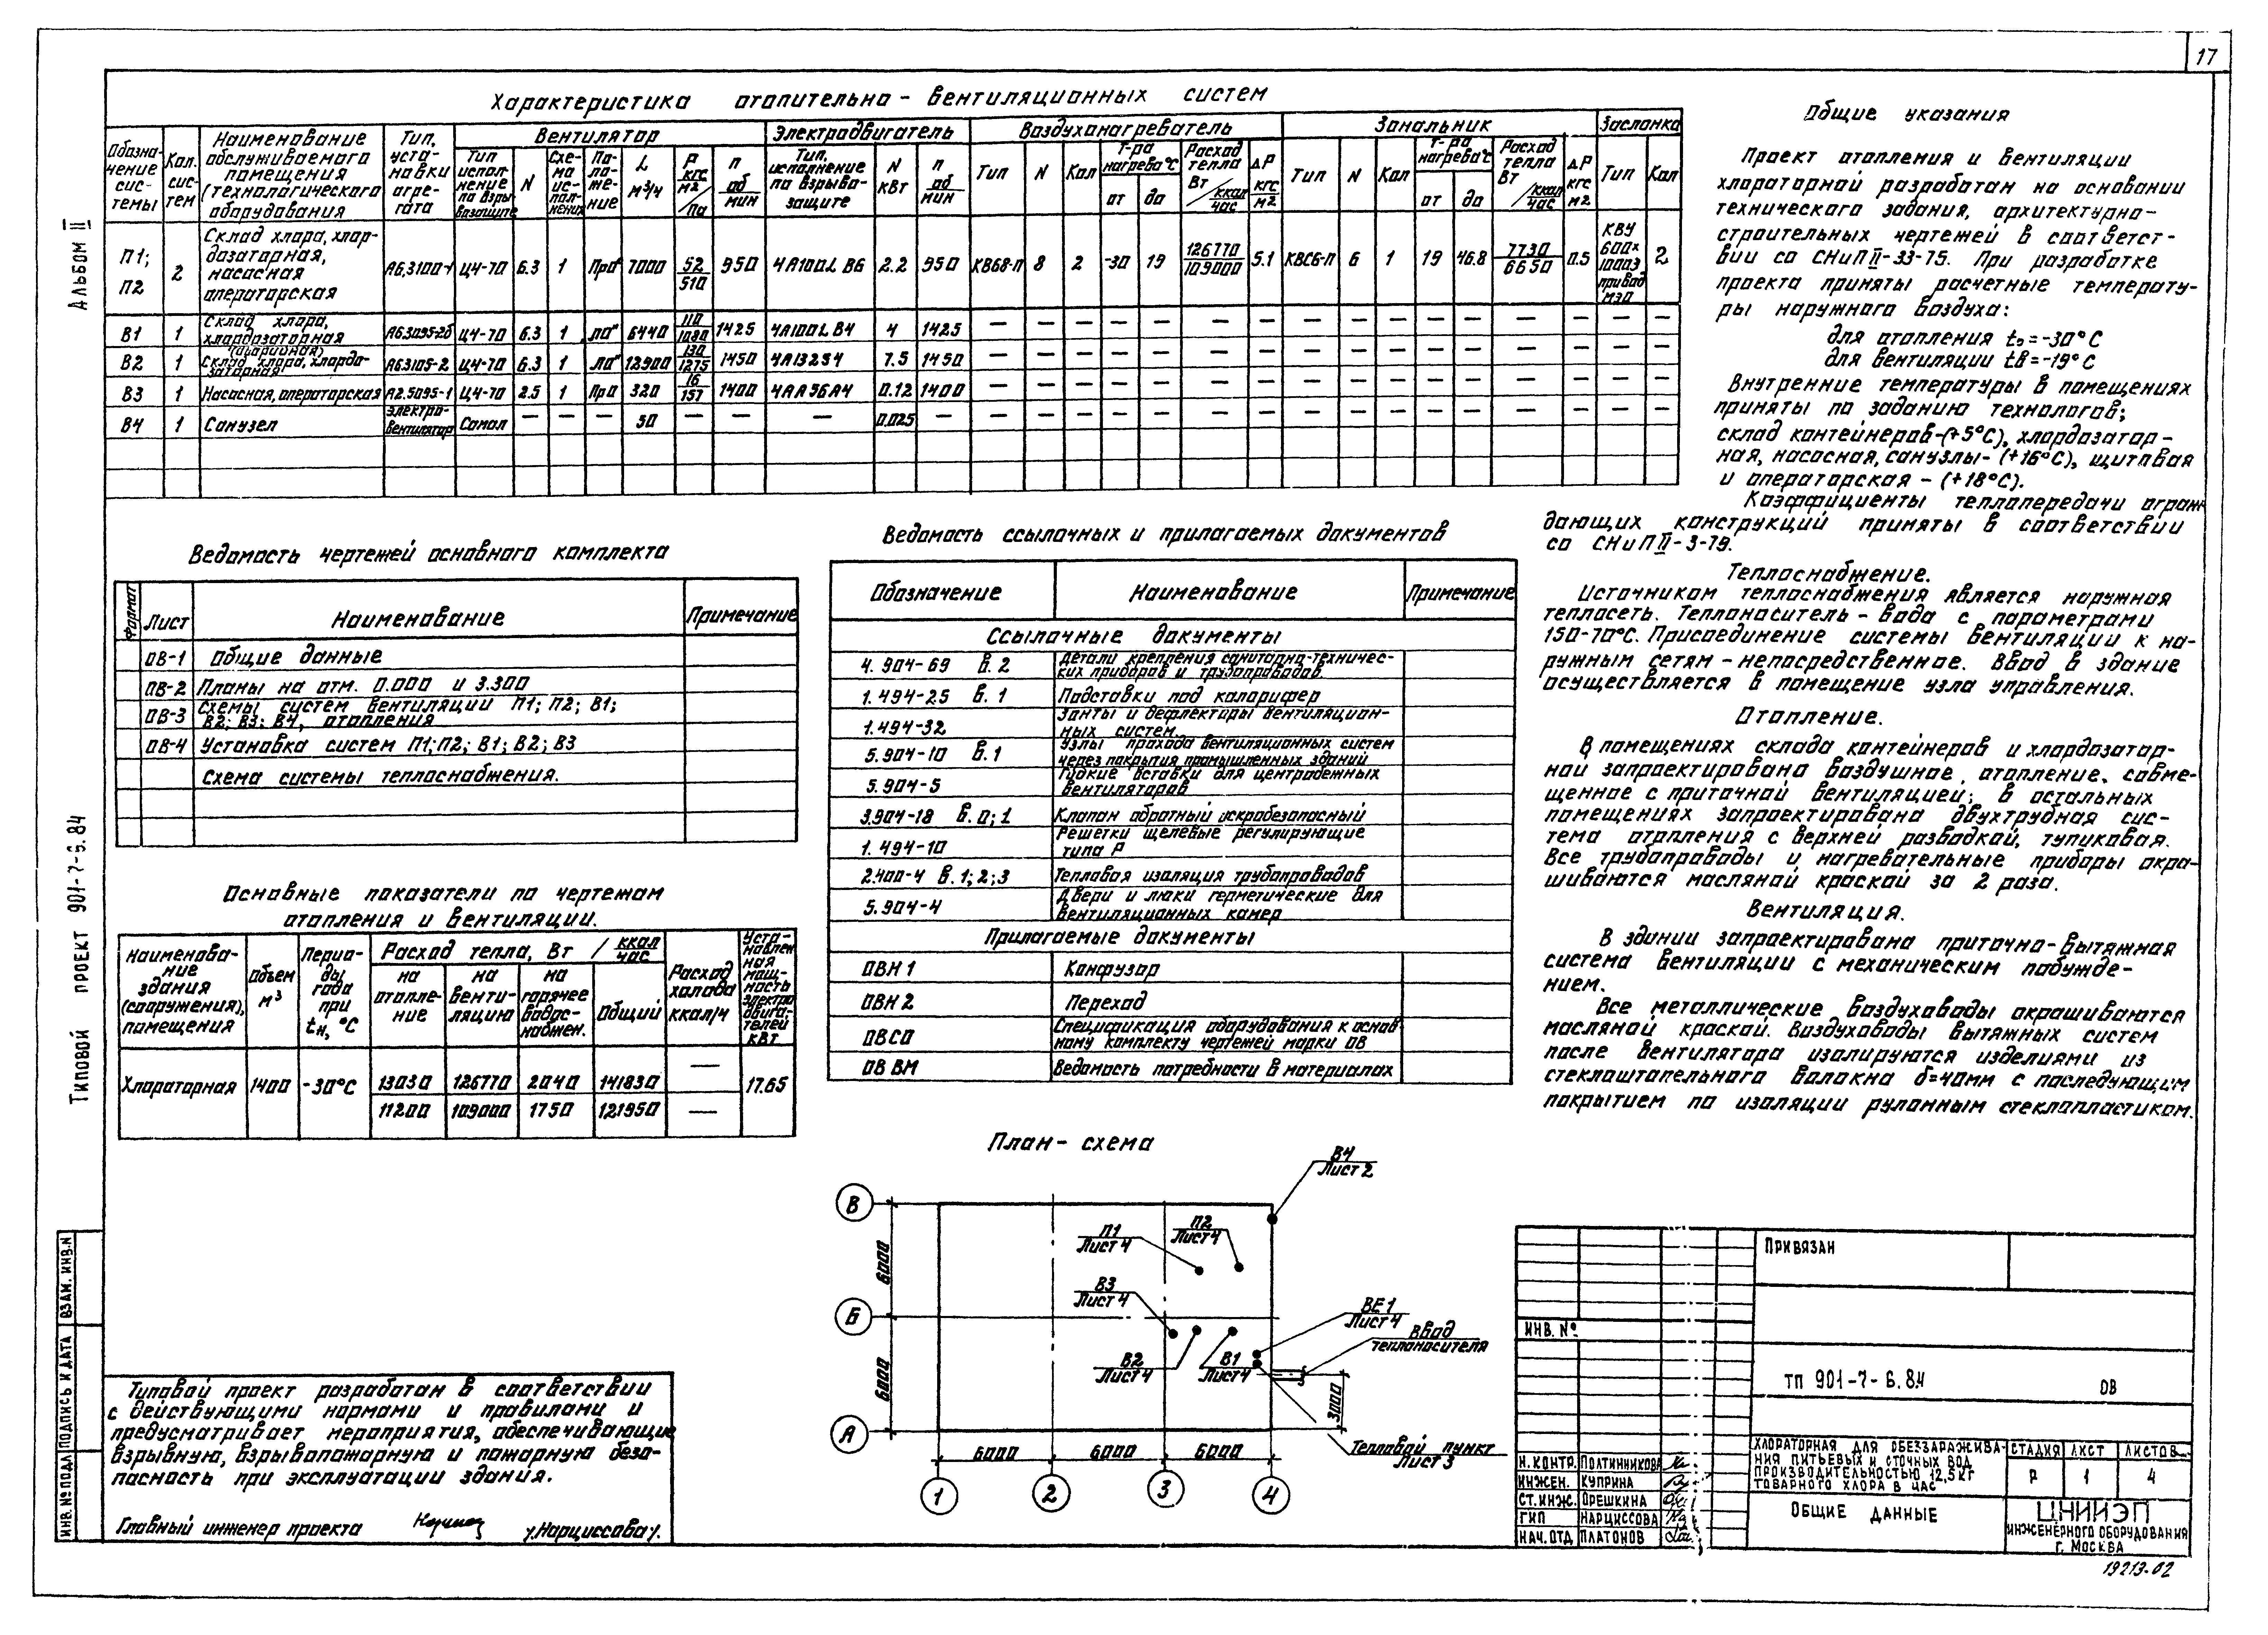 17
Альбом II
Типовой проект 901-7-6.84
Характеристика отопительно-вентиляционных систем
Обозна-чение сис-темы | Кол. сис-тем | Наименование обслуживаемого помещения (технологического оборудования | Тип, уста-новки агре-гата | Вентилятор | Электродвигатель | Воздухонагреватель | Зональник | Заслонка
Тип исполнение по взры-возащите | N | Схе-ма ис-пол-нения | По-ло-же-ние | L м³/ч | P кгс/м2 / Па | n об/мин | Тип, исполнение по взрыво-защите | N кВт | n об/мин | Тип | N | Кол | Т-ра нагрева°С от до | Расход тепла Вт / ккал/час | ΔР кгс/м2 | Тип | N | Кол | Т-ра нагрева°С от до | Расход тепла Вт / ккал/час | ΔР кгс/м2 | Тип | Кол
П1; П2 | 2 | Склад хлора, хлор-дозаторная, насосная операторская | А6,3100-1 | Ц4-70 | 6.3 | 1 | Пр0° | 7000 | 52/510 | 950 | 4А100L В6 | 2.2 | 950 | КВБ8-П | 8 | 2 | -30 | 19 | 126770/109000 | 5.1 | КВС6-П | 6 | 1 | 19 | 46.8 | 7730/6650 | 0.5 | КВУ 600х1000З привод МЭО | 2
В1 | 1 | Склад хлора, хлордозаторная | А6.3095-2б | Ц4-70 | 6.3 | 1 | Л0° | 6440 | 110/1080 | 1425 | 4А100L В4 | 4 | 1425 | — | — | — | — | — | — | — | — | — | — | — | — | — | — | — | —
В2 | 1 | (аварийная) Склад хлора, хлордо-заторная | А6.3105-2 | Ц4-70 | 6.3 | 1 | Л0° | 12900 | 130/1275 | 1450 | 4А132S4 | 7.5 | 1450 | — | — | — | — | — | — | — | — | — | — | — | — | — | — | — | —
В3 | 1 | Насосная, операторская | А2.5095-1 | Ц4-70 | 2.5 | 1 | Пр0 | 320 | 16/157 | 1400 | 4АА56А4 | 0.12 | 1400 | — | — | — | — | — | — | — | — | — | — | — | — | — | — | — | —
В4 | 1 | Санузел | Электро-вентилятор | Самал | — | — | — | 50 | — | — | — | 0.025 | — | — | — | — | — | — | — | — | — | — | — | — | — | — | — | — | —
Общие указания
Проект отопления и вентиляции
хлораторной разработан на основании
технического задания, архитектурно-
строительных чертежей в соответст-
вии со СНиП II-33-75. При разработке
проекта приняты расчетные температу-
ры наружного воздуха:
для отопления tо=-30°С
для вентиляции tв=-19°С
Внутренние температуры в помещениях
приняты по заданию технологов;
склад контейнеров-(+5°С), хлордозатор-
ная, насосная, санузлы- (+16°С), щитовая
и операторская - (+18°С).
Коэффициенты теплопередачи ограж
дающих конструкций приняты в соответствии
со СНиП II-3-79.
Теплоснабжение.
Источником теплоснабжения является наружная
теплосеть. Теплоноситель - вода с параметрами
150-70°С. Присоединение системы вентиляции к на-
ружным сетям - непосредственное. Ввод в здание
осуществляется в помещение узла управления.
Отопление.
В помещениях склада контейнеров и хлордозатор-
ной запроектировано воздушное, отопление, совме-
щенное с приточной вентиляцией; в остальных
помещениях запроектирована двухтрубная сис-
тема отопления с верхней разводкой, тупиковая.
Все трубопроводы и нагревательные приборы окра-
шиваются масляной краской за 2 раза.
Вентиляция.
В здании запроектирована приточно-вытяжная
система вентиляции с механическим побужде-
нием.
Все металлические воздуховоды окрашиваются
масляной краской. Воздуховоды вытяжных систем
после вентилятора изолируются изделиями из
стеклоштапельного волокна δ=40мм с последующим
покрытием по изоляции рулонным стеклопластиком.
Ведомость чертежей основного комплекта
Формат | Лист | Наименование | Примечание
ОВ-1 | Общие данные
ОВ-2 | Планы на отм. 0.000 и 3.300
ОВ-3 | Схемы систем вентиляции П1; П2; В1;
В2; В3; В4, отопления
ОВ-4 | Установка систем П1;П2; В1; В2; В3
Схема системы теплоснабжения.
Ведомость ссылочных и прилагаемых документов
Обозначение | Наименование | Примечание
Ссылочные документы
4.904-69 в.2 | Детали крепления санитарно-техничес-
ких приборов и трубопроводов
1.494-25 в.1 | Подставки под калорифер
1.494-32 | Зонты и дефлекторы вентиляцион-
ных систем
5.904-10 в.1 | Узлы прохода вентиляционных систем
через покрытия промышленных зданий
5.904-5 | Гибкие вставки для центробежных
вентиляторов
3.904-18 в.0;1 | Клапан обратный искробезопасный
1.494-10 | Решетки щелевые регулирующие
типа Р
2.400-4 в.1;2;3 | Тепловая изоляция трубопроводов
5.904-4 | Двери и люки герметические для
вентиляционных камер
Прилагаемые документы
ОВН 1 | Конфузор
ОВН 2 | Переход
ОВСО | Спецификация оборудования к основ
ному комплекту чертежей марки ОВ
ОВ ВМ | Ведомость потребности в материалах
Основные показатели по чертежам
отопления и вентиляции.
Наименова-ние здания (сооружения), помещения | Объем м³ | Перио-ды года при tн, °С | Расход тепла, Вт / ккал/час | Расход холода ккал/ч | Уста-новлен ная мощ-ность электро двига-телей кВт
на отопле-ние | на венти-ляцию | на горячее водос-набжен. | Общий
Хлораторная | 1400 | -30°С | 13030 | 126770 | 2040 | 141830 | — | 17.65
11200 | 109000 | 1750 | 121950 | —
План-схема
В4
Лист 2
В
П1
Лист 4
П2
Лист 4
6000
В3
Лист 4
Б
ВЕ1
Лист 4
Ввод
теплоносителя
В2
Лист 4
В1
Лист 4
6000
3000
А
6000 6000 6000
Тепловой пункт
Лист 3
1 2 3 4
Типовой проект разработан в соответствии
с действующими нормами и правилами и
предусматривает мероприятия, обеспечивающие
взрывную, взрывопожарную и пожарную безо-
пасность при эксплуатации здания.
Главный инженер проекта /Нарциссова/.
Инв. № подл Подпись и дата Взам. инв. N
Привязан
Инв. №
ТП 901-7-6.84 ОВ
Хлораторная для обеззаражива-
ния питьевых и сточных вод
производительностью 12,5кг
товарного хлора в час
Стадия Лист Листов
Р 1 4
Н.контр. Полтинникова
Инжен. Куприна
Ст.инж. Орешкина
ГИП Нарциссова
Нач.отд Платонов
Общие данные
ЦНИИЭП
инженерного оборудования
г. Москва
19213-02